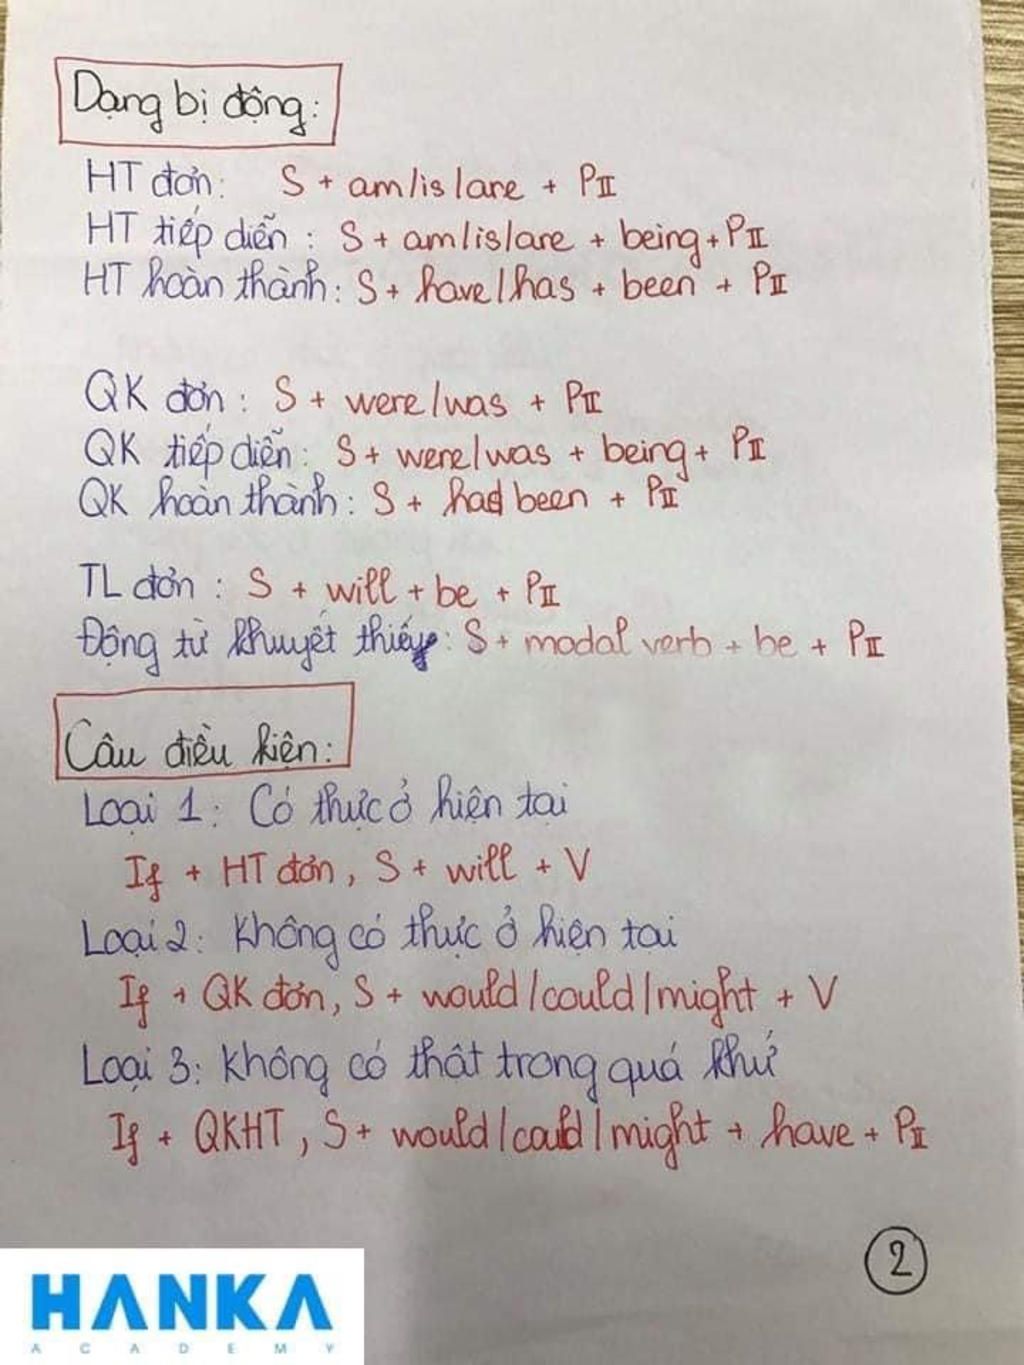 Dạng bị động:
HT đơn: S + am/is/are + PII
HT tiếp diễn: S + am/is/are + being + PII
HT hoàn thành: S + have/has + been + PII
QK đơn: S + were/was + PII
QK tiếp diễn: S + were/was + being + PII
QK hoàn thành: S + had been + PII
TL đơn: S + will + be + PII
Động từ khuyết thiếu: S + modal verb + be + PII
Câu điều kiện:
Loại 1: Có thực ở hiện tại
If + HT đơn, S + will + V
Loại 2: Không có thực ở hiện tại
If + QK đơn, S + would/could/might + V
Loại 3: Không có thật trong quá khứ
If + QKHT, S + would/could/might + have + PII
2
HANKA
ACADEMY